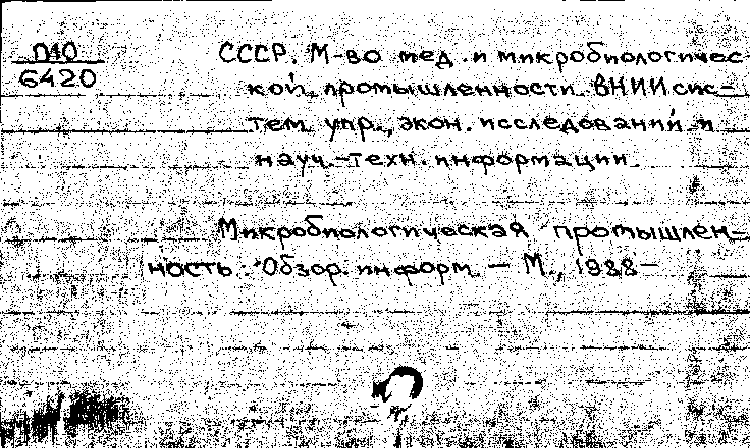 П10
6420
СССР. М-во мед. и микробиологичес-
кой промышленности. ВНИИ сис-
тем упр., экон. исследований и
науч.-техн. информации.
Микробиологическая промышлен-
ность: Обзор. информ. — М., 1988—